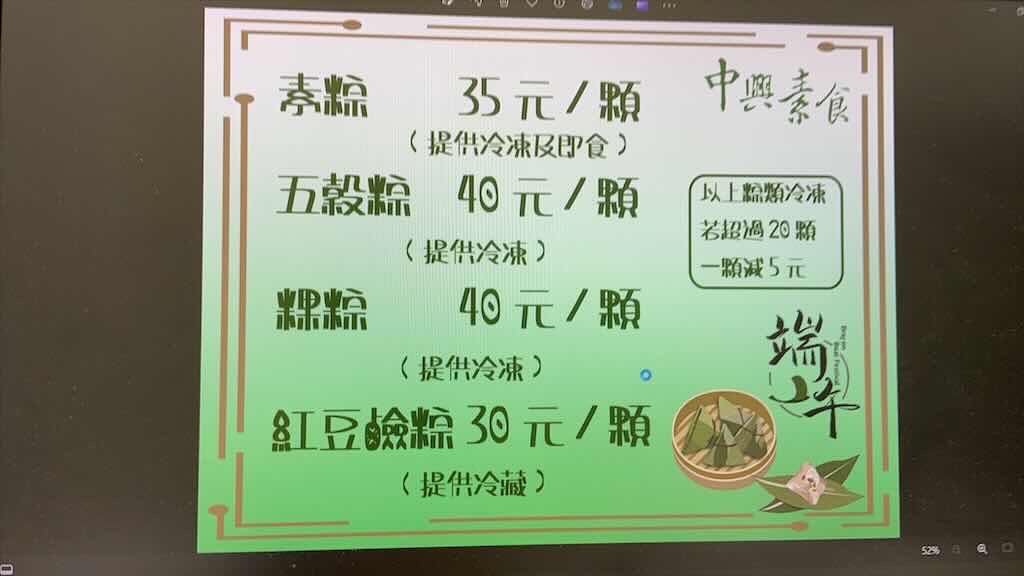 中興素食
素粽 35元/顆
(提供冷凍及即食)
五穀粽 40元/顆
(提供冷凍)
粿粽 40元/顆
(提供冷凍)
紅豆鹼粽 30元/顆
(提供冷藏)
以上粽類冷凍
若超過20顆
一顆減5元
端午
52%